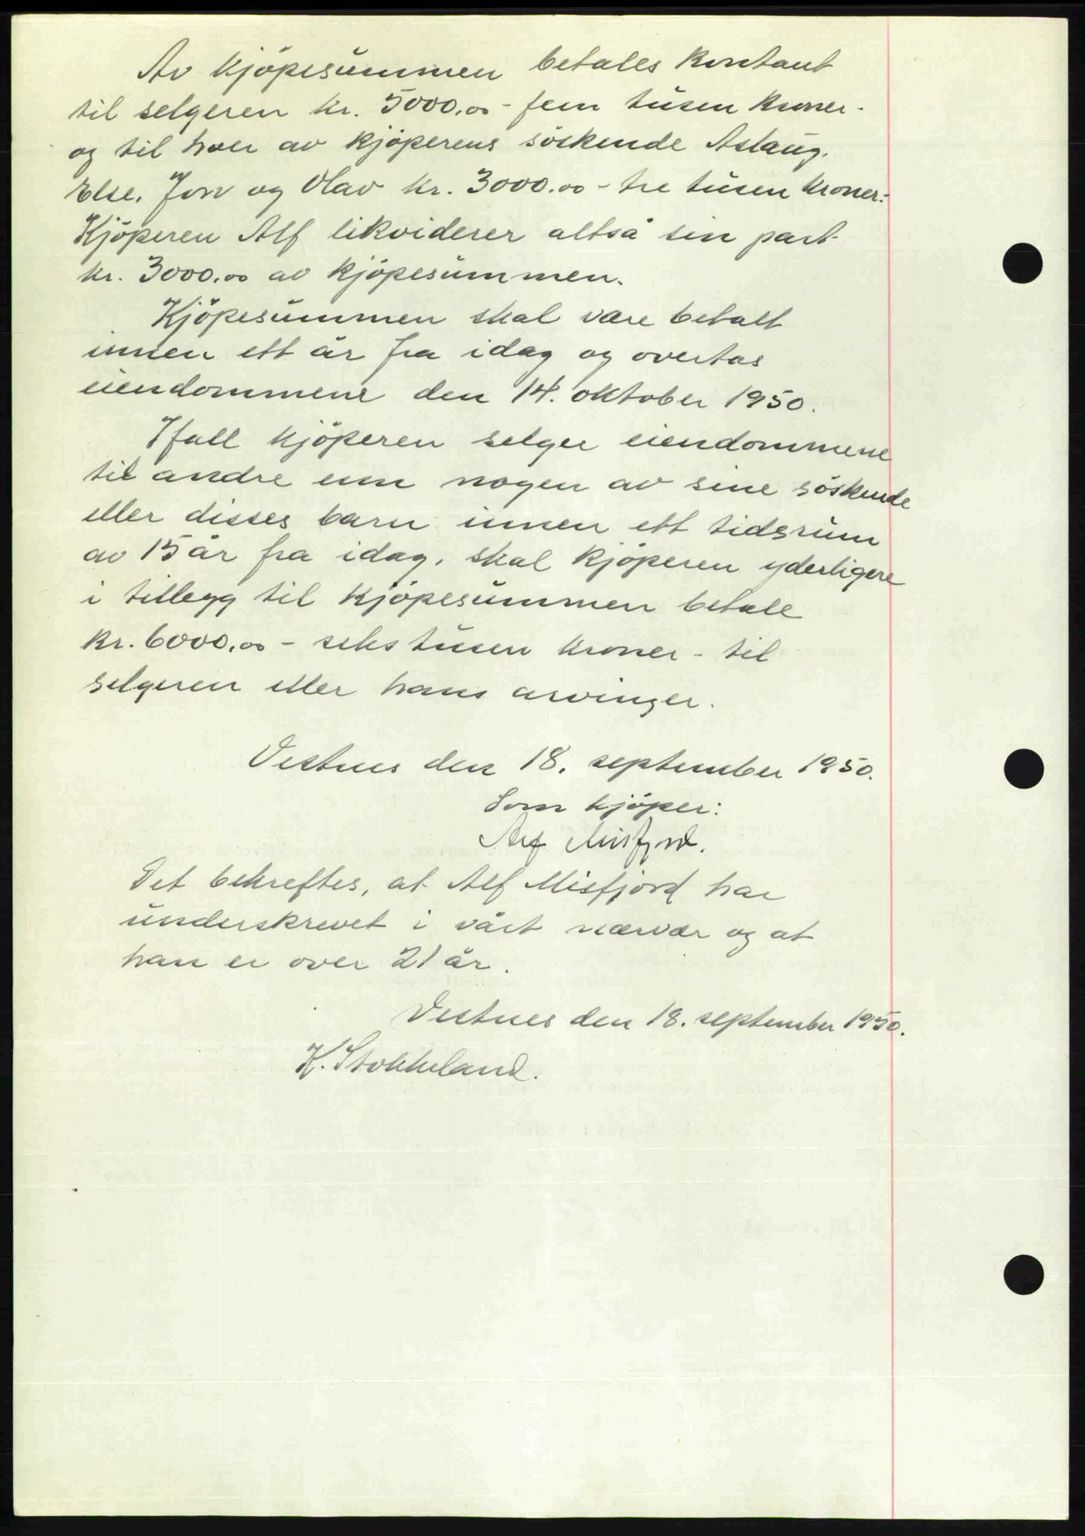 Av kjöpesummen betales kontant
til selgeren kr. 5000.00 - fem tusen kroner -
og til hver av kjöperens söskende Aslaug,
Else, Jon og Olav kr. 3000.00 - tre tusen kroner -
Kjöperen Alf likviderer altså sin part
kr. 3000.00 av kjöpesummen.
Kjöpesummen skal være betalt
innen ett år fra idag og overtas
eiendommene den 14. oktober 1950.
Ifall kjöperen selger eiendommene
til andre enn nogen av sine söskende
eller disses barn innen ett tidsrum
av 15 år fra idag, skal kjöperen yderligere
i tillegg til kjöpesummen betale
kr. 6000.00 - seks tusen kroner - til
selgeren eller hans arvinger.
Vestnes den 18. september 1950.
Som kjöper:
Alf Misfjord.
Det bekreftes, at Alf Misfjord har
underskrevet i vårt nærvær og at
han er over 21 år.
Vestnes den 18. september 1950.
K. Stokkeland.